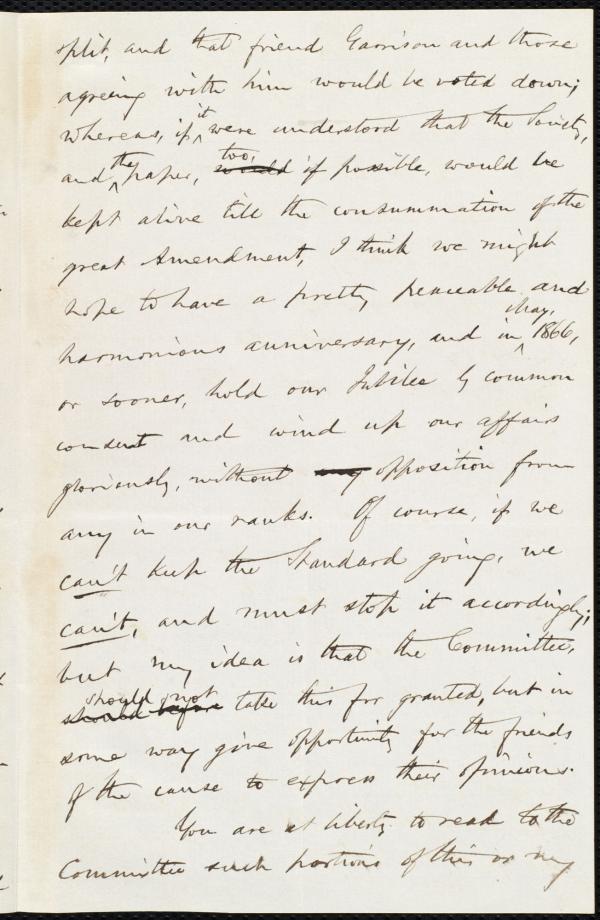 split, and that friend Garrison and those
agreeing with him would be voted down;
whereas, if it were understood that the Society,
and the paper, too, would if possible, would be
kept alive till the consummation of the
great Amendment, I think we might
hope to have a pretty peaceable and
harmonious anniversary, and in May, 1866,
or sooner, hold our Jubilee by common
consent and wind up our affairs
gloriously, without any opposition from
any in our ranks. Of course, if we
can't keep the Standard going, we
can't, and must stop it accordingly;
but my idea is that the Committee,
should not should before take this for granted, but in
some way give opportunity for the friends
of the cause to express their opinions.
You are at liberty to read to the
Committee such portions of this or my